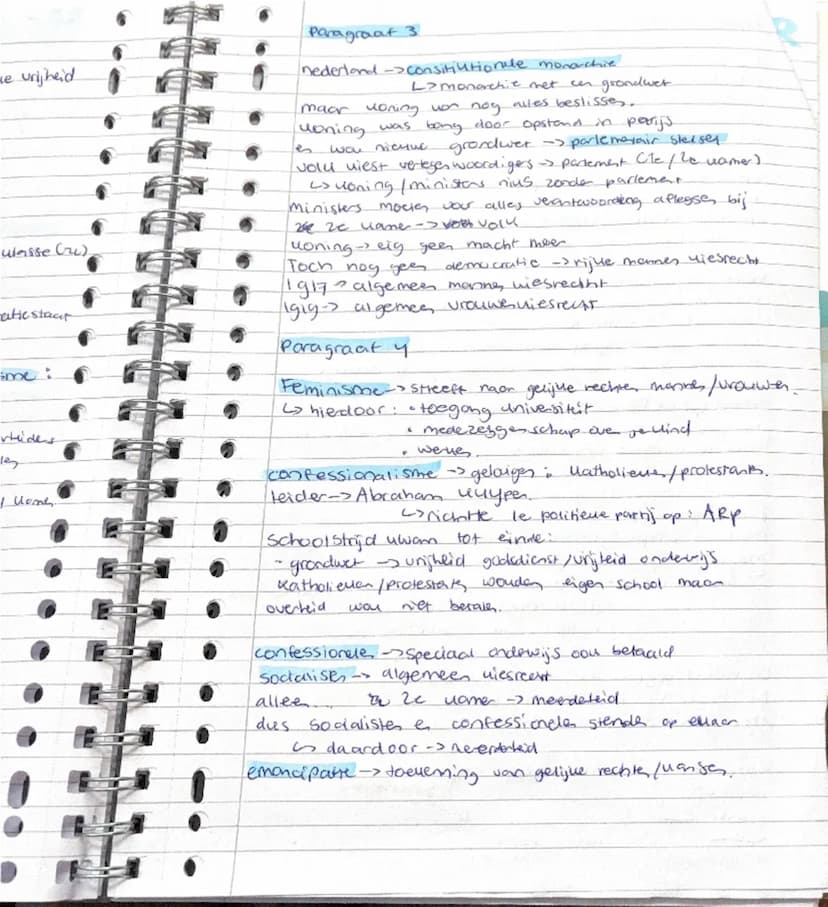 Paragraaf 3
nederland → consitutionele monarchie
↳ monarchie met een grondwet
maar koning kon nog alles beslissen.
koning was bang door opstand in parijs
en wou nieuwe grondwet → parlementair stelsel
volk kiest vertegenwoordigers → parlement (1e / 2e kamer)
↳ koning / ministers niks zonder parlement
ministers moeten voor alles verantwoording afleggen bij
2e kamer → volk
koning → eig geen macht meer
Toch nog geen democratie → rijke mannen kiesrecht
1917 → algemeen mannen kiesrecht
1919 → algemeen vrouwenkiesrecht
Paragraaf 4
Feminisme → streeft naar gelijke rechten mannen / vrouwen.
↳ hierdoor: • toegang universiteit
• medezeggenschap over je kind
• werken.
confessionalisme → gelovigen: katholieken / protestants.
leider → Abraham kuyper.
↳ richtte 1e politieke partij op: ARP
Schoolstrijd kwam tot einde:
- grondwet → vrijheid godsdienst / vrijheid onderwijs
katholieken / protestants wouden eigen school maar
overheid wou niet betalen.
confessionelen → speciaal onderwijs ook betaald
socialisten → algemeen kiesrecht
alleen... 2e kamer → meerderheid
dus socialisten en confessionelen stemden op elkaar
↳ daardoor → meerderheid
emancipatie → toekenning van gelijke rechten / kansen.
ke vrijheid
klasse (
atie staat
sme:
rbeiders
len
/ kamer